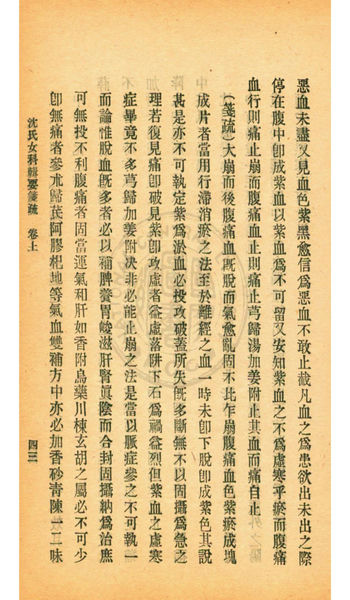 惡血未盡又見血色紫黑愈信爲惡血不敢止截凡血之爲患欲出未出之際
停在腹中卽成紫血以紫血爲不可留又安知紫血之不爲虛寒乎瘀而腹痛
血行則痛止崩而腹痛血止則痛止芎歸湯加姜附止其血而痛自止
(箋疏)大崩而後腹痛血旣脫而氣愈亂固不比乍崩腹痛血色紫瘀成塊
成片者當用行滯消瘀之法至於離經之血一時未卽下脫卽成紫色其說
甚是亦不可執定紫爲淤血必投攻破蓋所失旣多斷無不以固攝爲急之
理若復見痛卽破見紫卽攻虛者益虛落阱下石爲禍益烈但紫血之虛寒
症畢竟不多芎歸加姜附決非必能止崩之法是當以脈症參之不可執一
而論惟脫血旣多者必以補脾養胃峻滋肝腎眞陰而合封固攝納爲治庶
可無投不利腹痛者固當運氣和肝如香附烏藥川楝玄胡之屬必不可少
卽無痛者參朮歸芪阿膠杞地等氣血雙補方中亦必加香砂靑陳一二味
沈氏女科輯要箋疏 卷上
四三